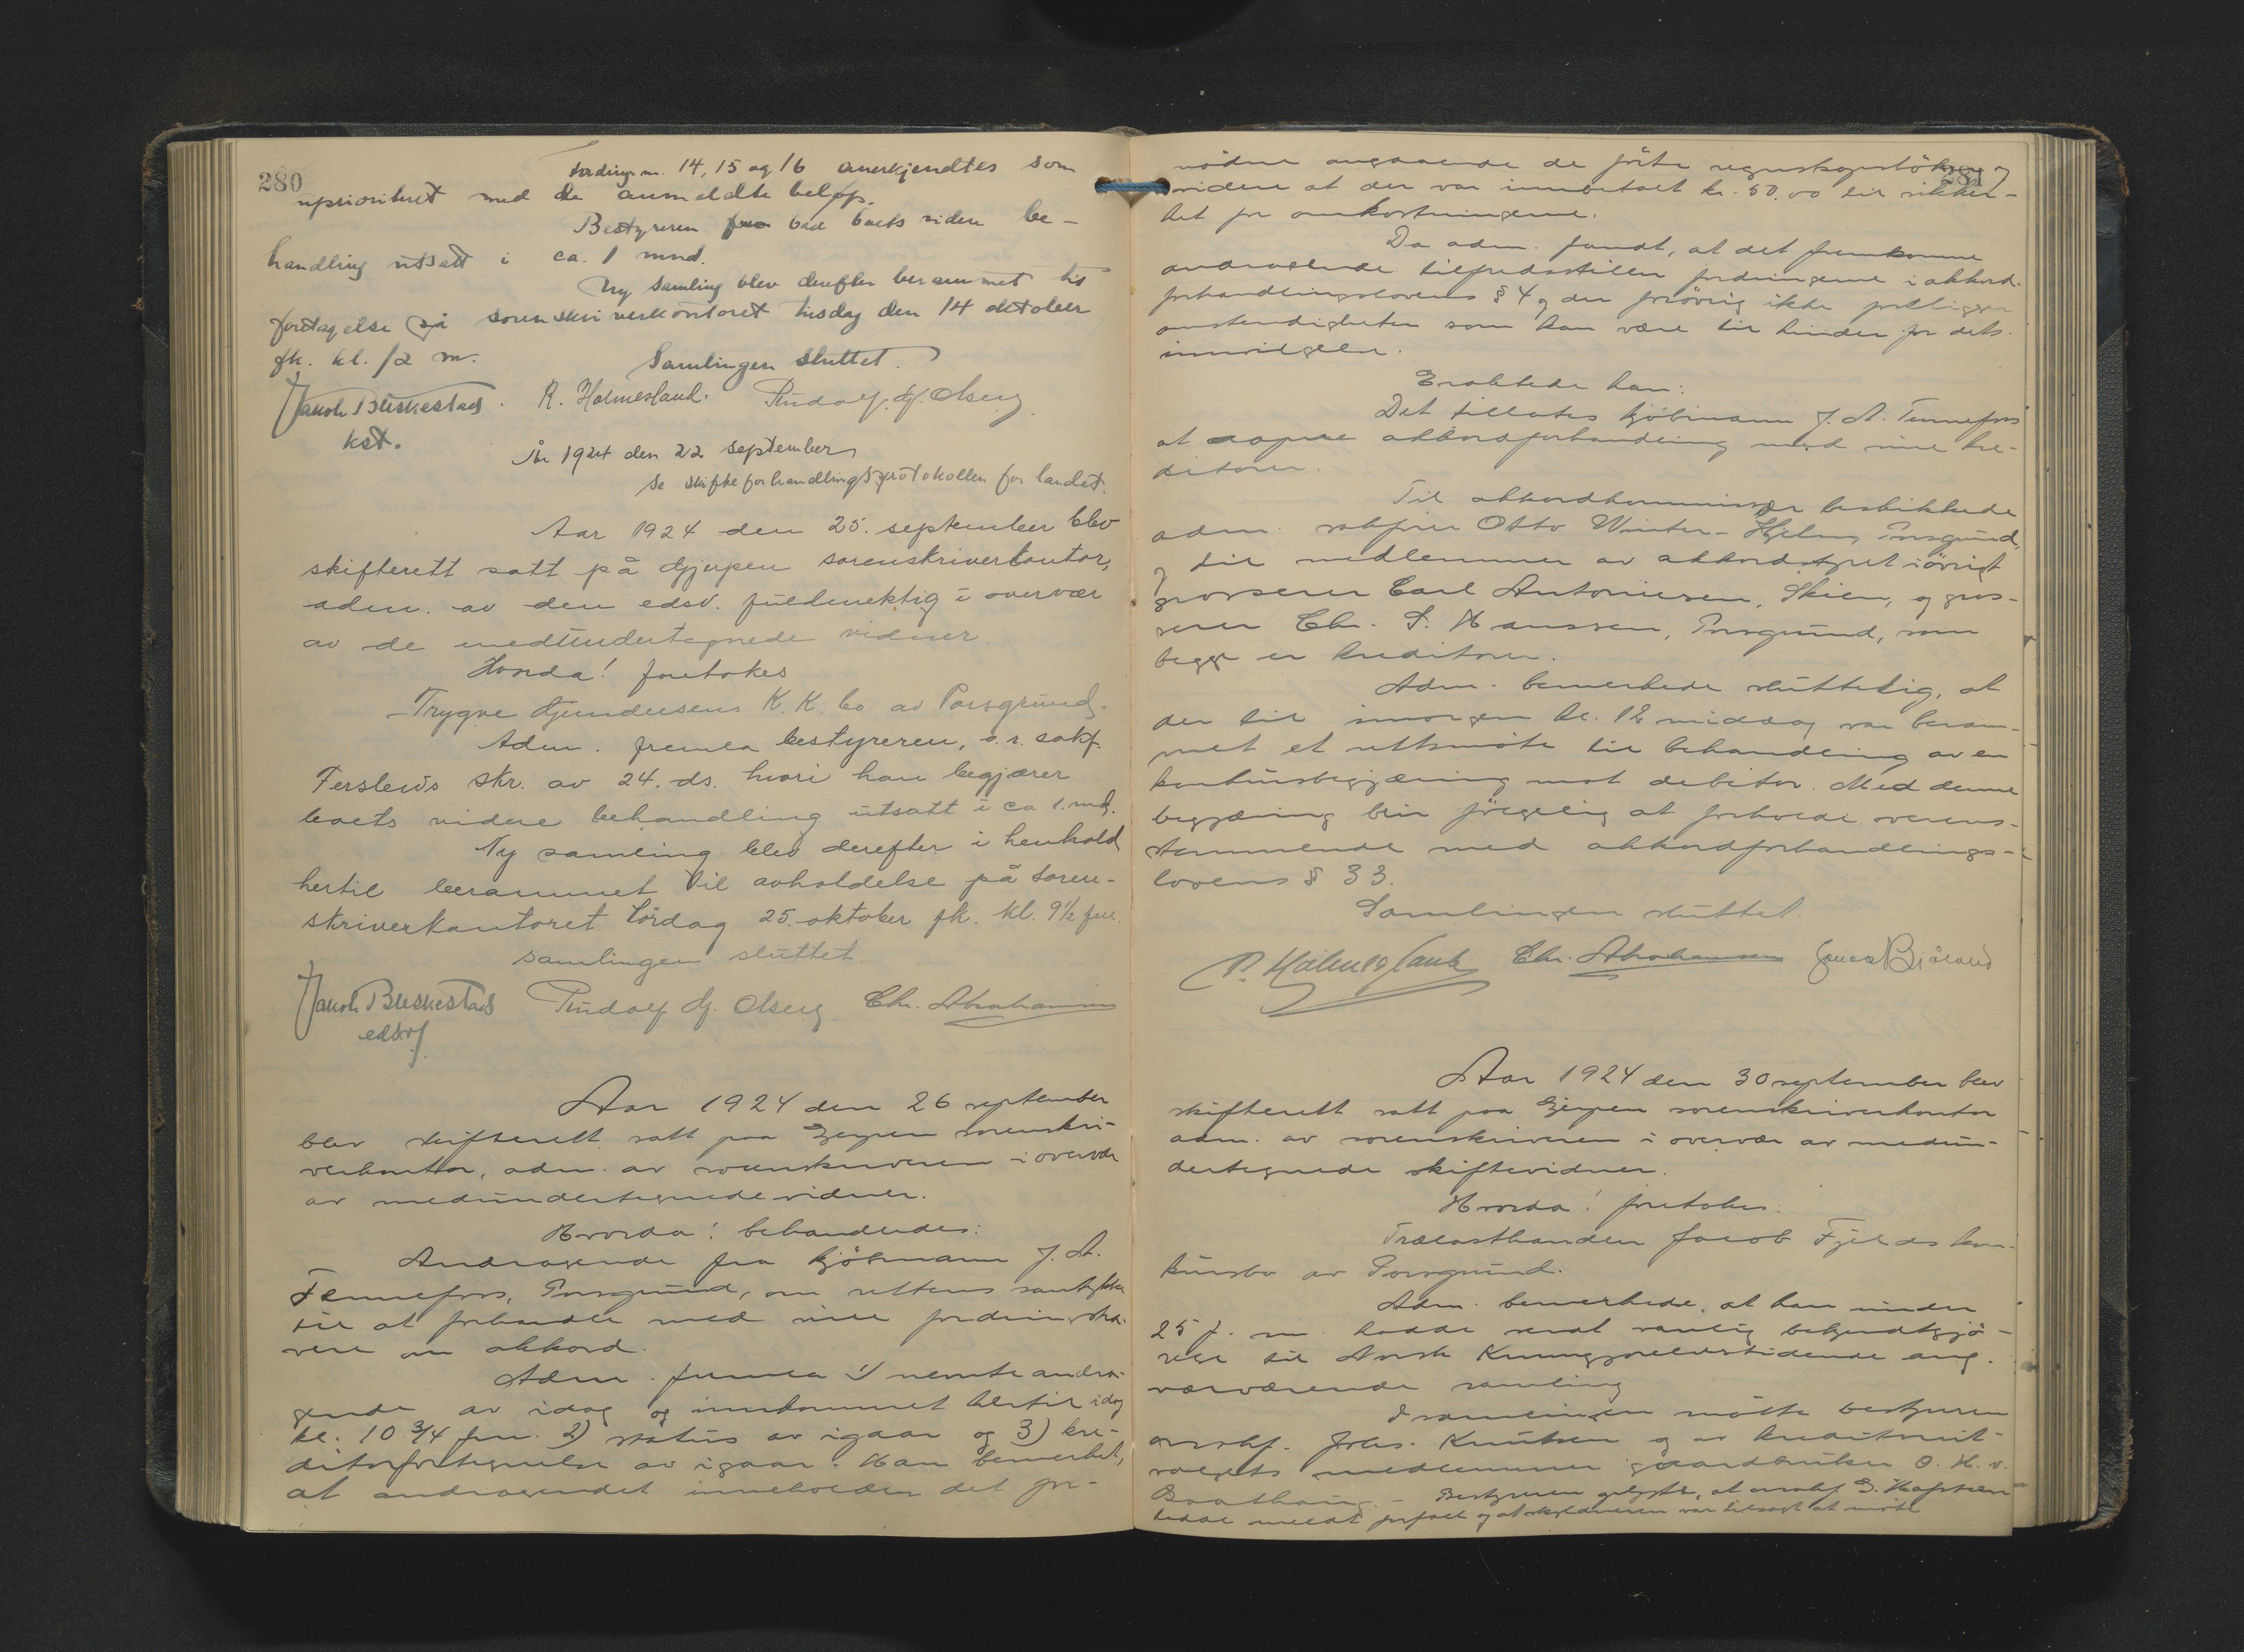 280
Fordings nr. 14, 15 og 16 anerkjendtes som
uprioritert med de anmeldte beløp.
Bestyreren bad boets videre be-
handling utsatt i ca. 1 mnd.
Ny samling blev derefter berammet til
foretagelse på sorenskriverkontoret tirsdag den 14 oktober
fk. kl. 12 m.
Samlingen sluttet.
Jakob Buskestad. R. Holmesland. Rudolf Gj. Olsen
kst.
År 1924 den 22 september
se skifteforhandlingsprotokollen for landet.
Aar 1924 den 25. september blev
skifterett satt på Gjerpen sorenskriverkontor,
adm. av den edsv. fuldmektig i overvær
av de medundertegnede vidner.
Hvorda! foretokes
Trygve Gundersens K. K. bo av Porsgrund.
Adm. fremla bestyreren, o.r. sakf.
Ferslews skr. av 24. ds. hvori han begjærer
boets videre behandling utsatt i ca 1. md.
Ny samling blev derefter i henhold
hertil berammet til avholdelse på soren-
skriverkontoret lördag 25. oktober fk. kl. 9½ fm.
samlingen sluttet.
Jakob Buskestad Rudolf Gj. Olsen Chr. Abrahamsen
edsvf.
Aar 1924 den 26 september
blev skifterett satt paa Gjerpen sorenskri-
verkontor, adm. av sorenskriveren i overvær
av medundertegnede vidner.
Hvorda! behandledes:
Andragende fra kjöbmann J. A.
Tennefoss, Porsgrund, om rettens samtykke
til at forhandle med sine fordringsha-
vere om akkord.
Adm. fremla 1) nevnte andra-
gende av idag og innkommet hertil idag
kl. 10 3/4 fm. 2) status av igaar og 3) kre-
ditorfortegnelse av igaar. Han bemerket,
at andragendet inneholder det for-
281
nödne angaaende de förte regnskapsböker og
videre at der var innbetalt kr. 50.00 til sikker-
het for omkostningene.
Da adm. fandt, at det fremkomne
andragende tilfredsstiller fordringene i akkord-
forhandlingslovens § 4 og der forövrig ikke foreligger
omstendigheter som kan være til hinder for dets
innvilgelse.
Eraktede han:
Det tillates kjöbmann J. A. Tennefoss
at aapne akkordforhandling med sine kre-
ditorer.
Til akkordkommissær beskikkede
adm. sakförer Otto Winter-Hjelm, Porsgrund,
og til medlemmer av akkordstyret iövrigt
grosserer Carl Antoniesen, Skien, og gros-
serer Chr. S. Hanssen, Porsgrund, som
begge er kreditorer.
Adm. bemerkede sluttelig, at
der til imorgen kl. 12 middag var beram-
met et rettsmöte til behandling av en
konkursbegjæring mot debitor. Med denne
begjæring blir fölgelig at forholde overens-
stemmende med akkordforhandlings-
lovens § 33.
Samlingen sluttet.
P. Holmesland Chr. Abrahamsen Jonas Bjåland
Aar 1924 den 30 september blev
skifterett satt paa Gjerpen sorenskriverkontor
adm. av sorenskriveren i overvær av medun-
dertegnede skiftevidner.
Hvorda! foretokes:
Trælasthandler Jacob Fjelds kon-
kursbo av Porsgrund.
Adm. bemerkede, at han under
25 f. m. hadde sendt vanlig bekjendtgjö-
relse til Norsk Kunngjørelsestidende ang.
nærværende samling
I samlingen mötte bestyreren
orsakf. Johs. Knutsen og av kreditorut-
valgets medlemmer gaardbruker O. H. v.
Baathaug. - Bestyreren oplyste, at orsakf. S.
hadde meldt forfall og at skyldneren var tilsagt at möte